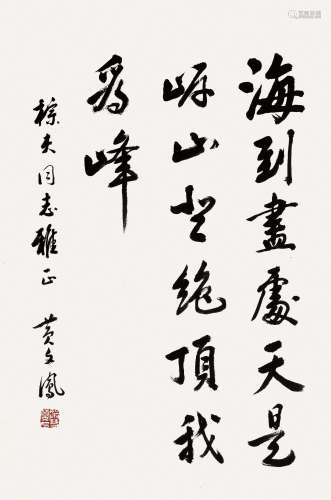 海到盡處天是
岸山登絕頂我
為峰
棕夫同志雅正
黃文鳳